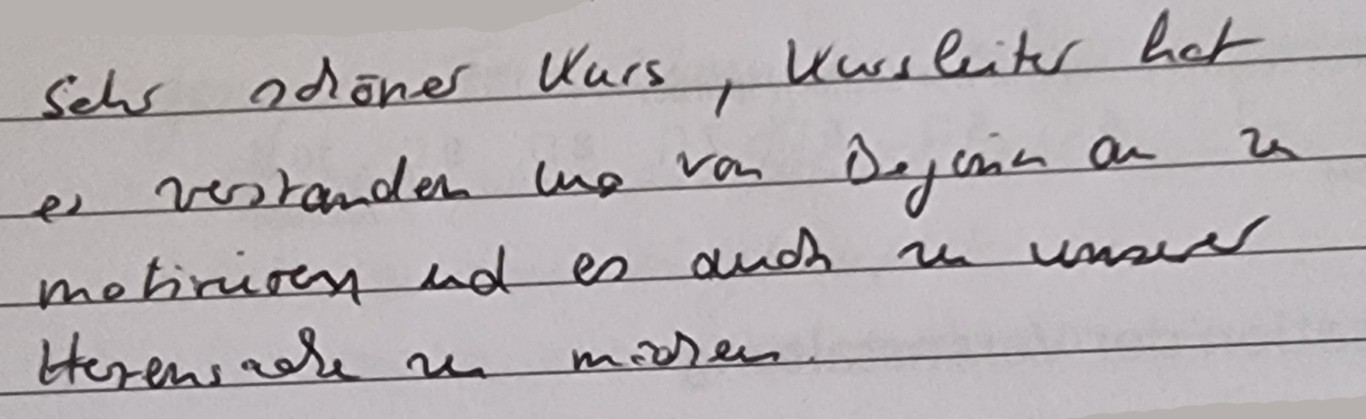 Sehr schöner Kurs, Kursleiter hat
es verstanden uns von Beginn an zu
motivieren und es auch zu unserer
Herzenssache zu machen.